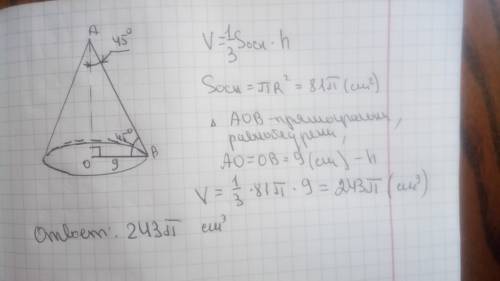 A
45°
45°
O
9
B
V=1/3 Sосн · h
Sосн = πR² = 81π (cm²)
△ AOB - прямоугольн,
равнобедрен,
AO=OB=9(cm) - h
V = 1/3 · 81π · 9 = 243π (cm³)
Ответ: 243π cm³